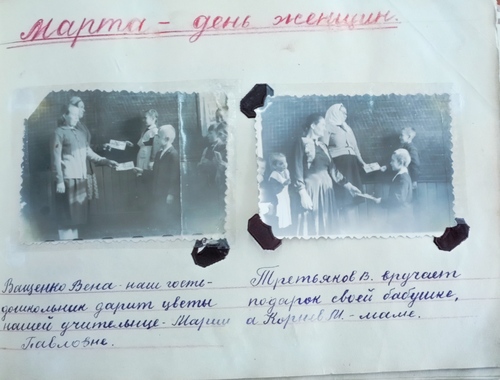 Марта - день женщин.
Ващенко Вена - наш гость-
дошкольник дарит цветы
нашей учительнице - Марии
Павловне.
Третьяков В. вручает
подарок своей бабушке,
а Корнев М. - маме.